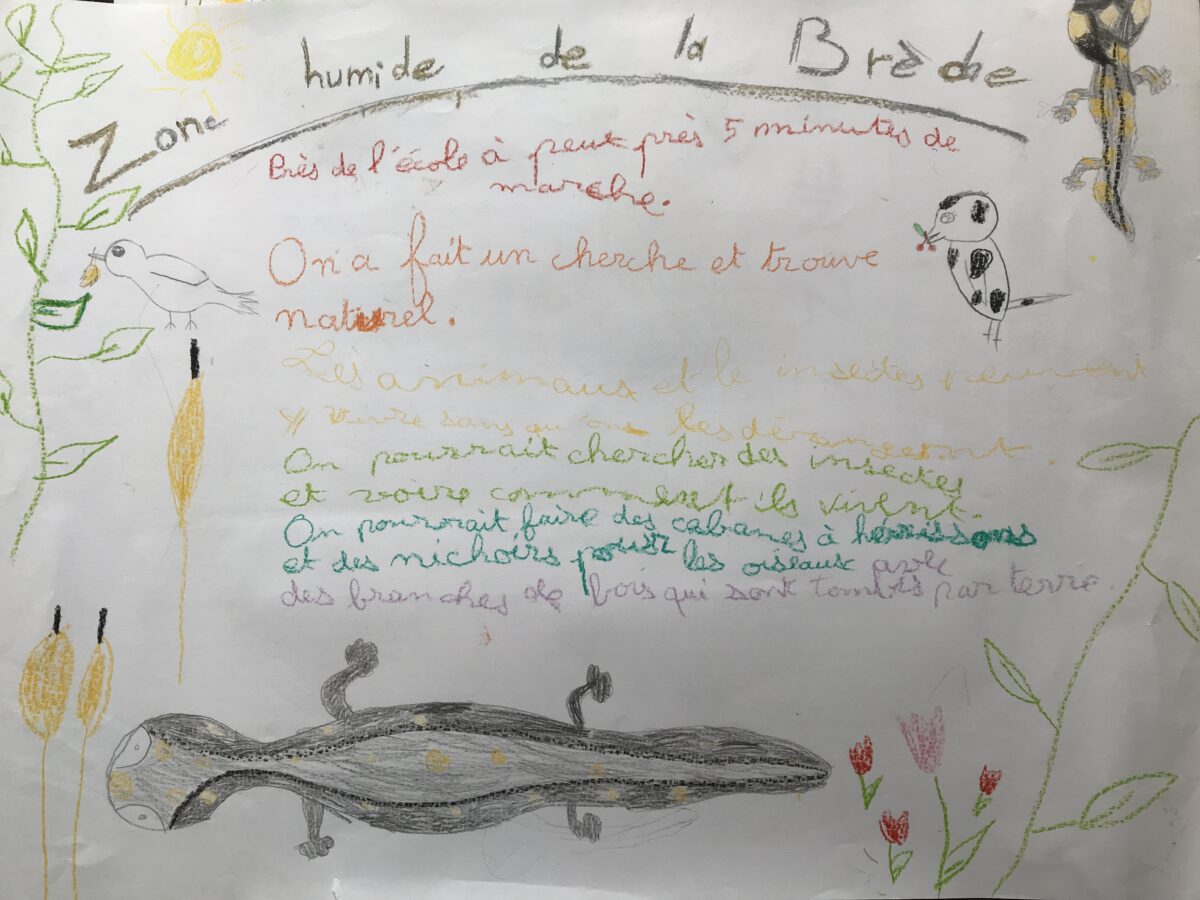 Zone humide de la Brèche
Près de l'école à peut près 5 minutes de
marche.
On a fait un cherche et trouve
naturel.
Les animaux et le insectes peuvent
y vivre sans qu'on les dérangeront.
On pourrait chercher des insectes
et voire comment ils vivent.
On pourrait faire des cabanes à hérissons
et des nichoirs pour les oiseaux avec
des branches de bois qui sont tombés par terre.